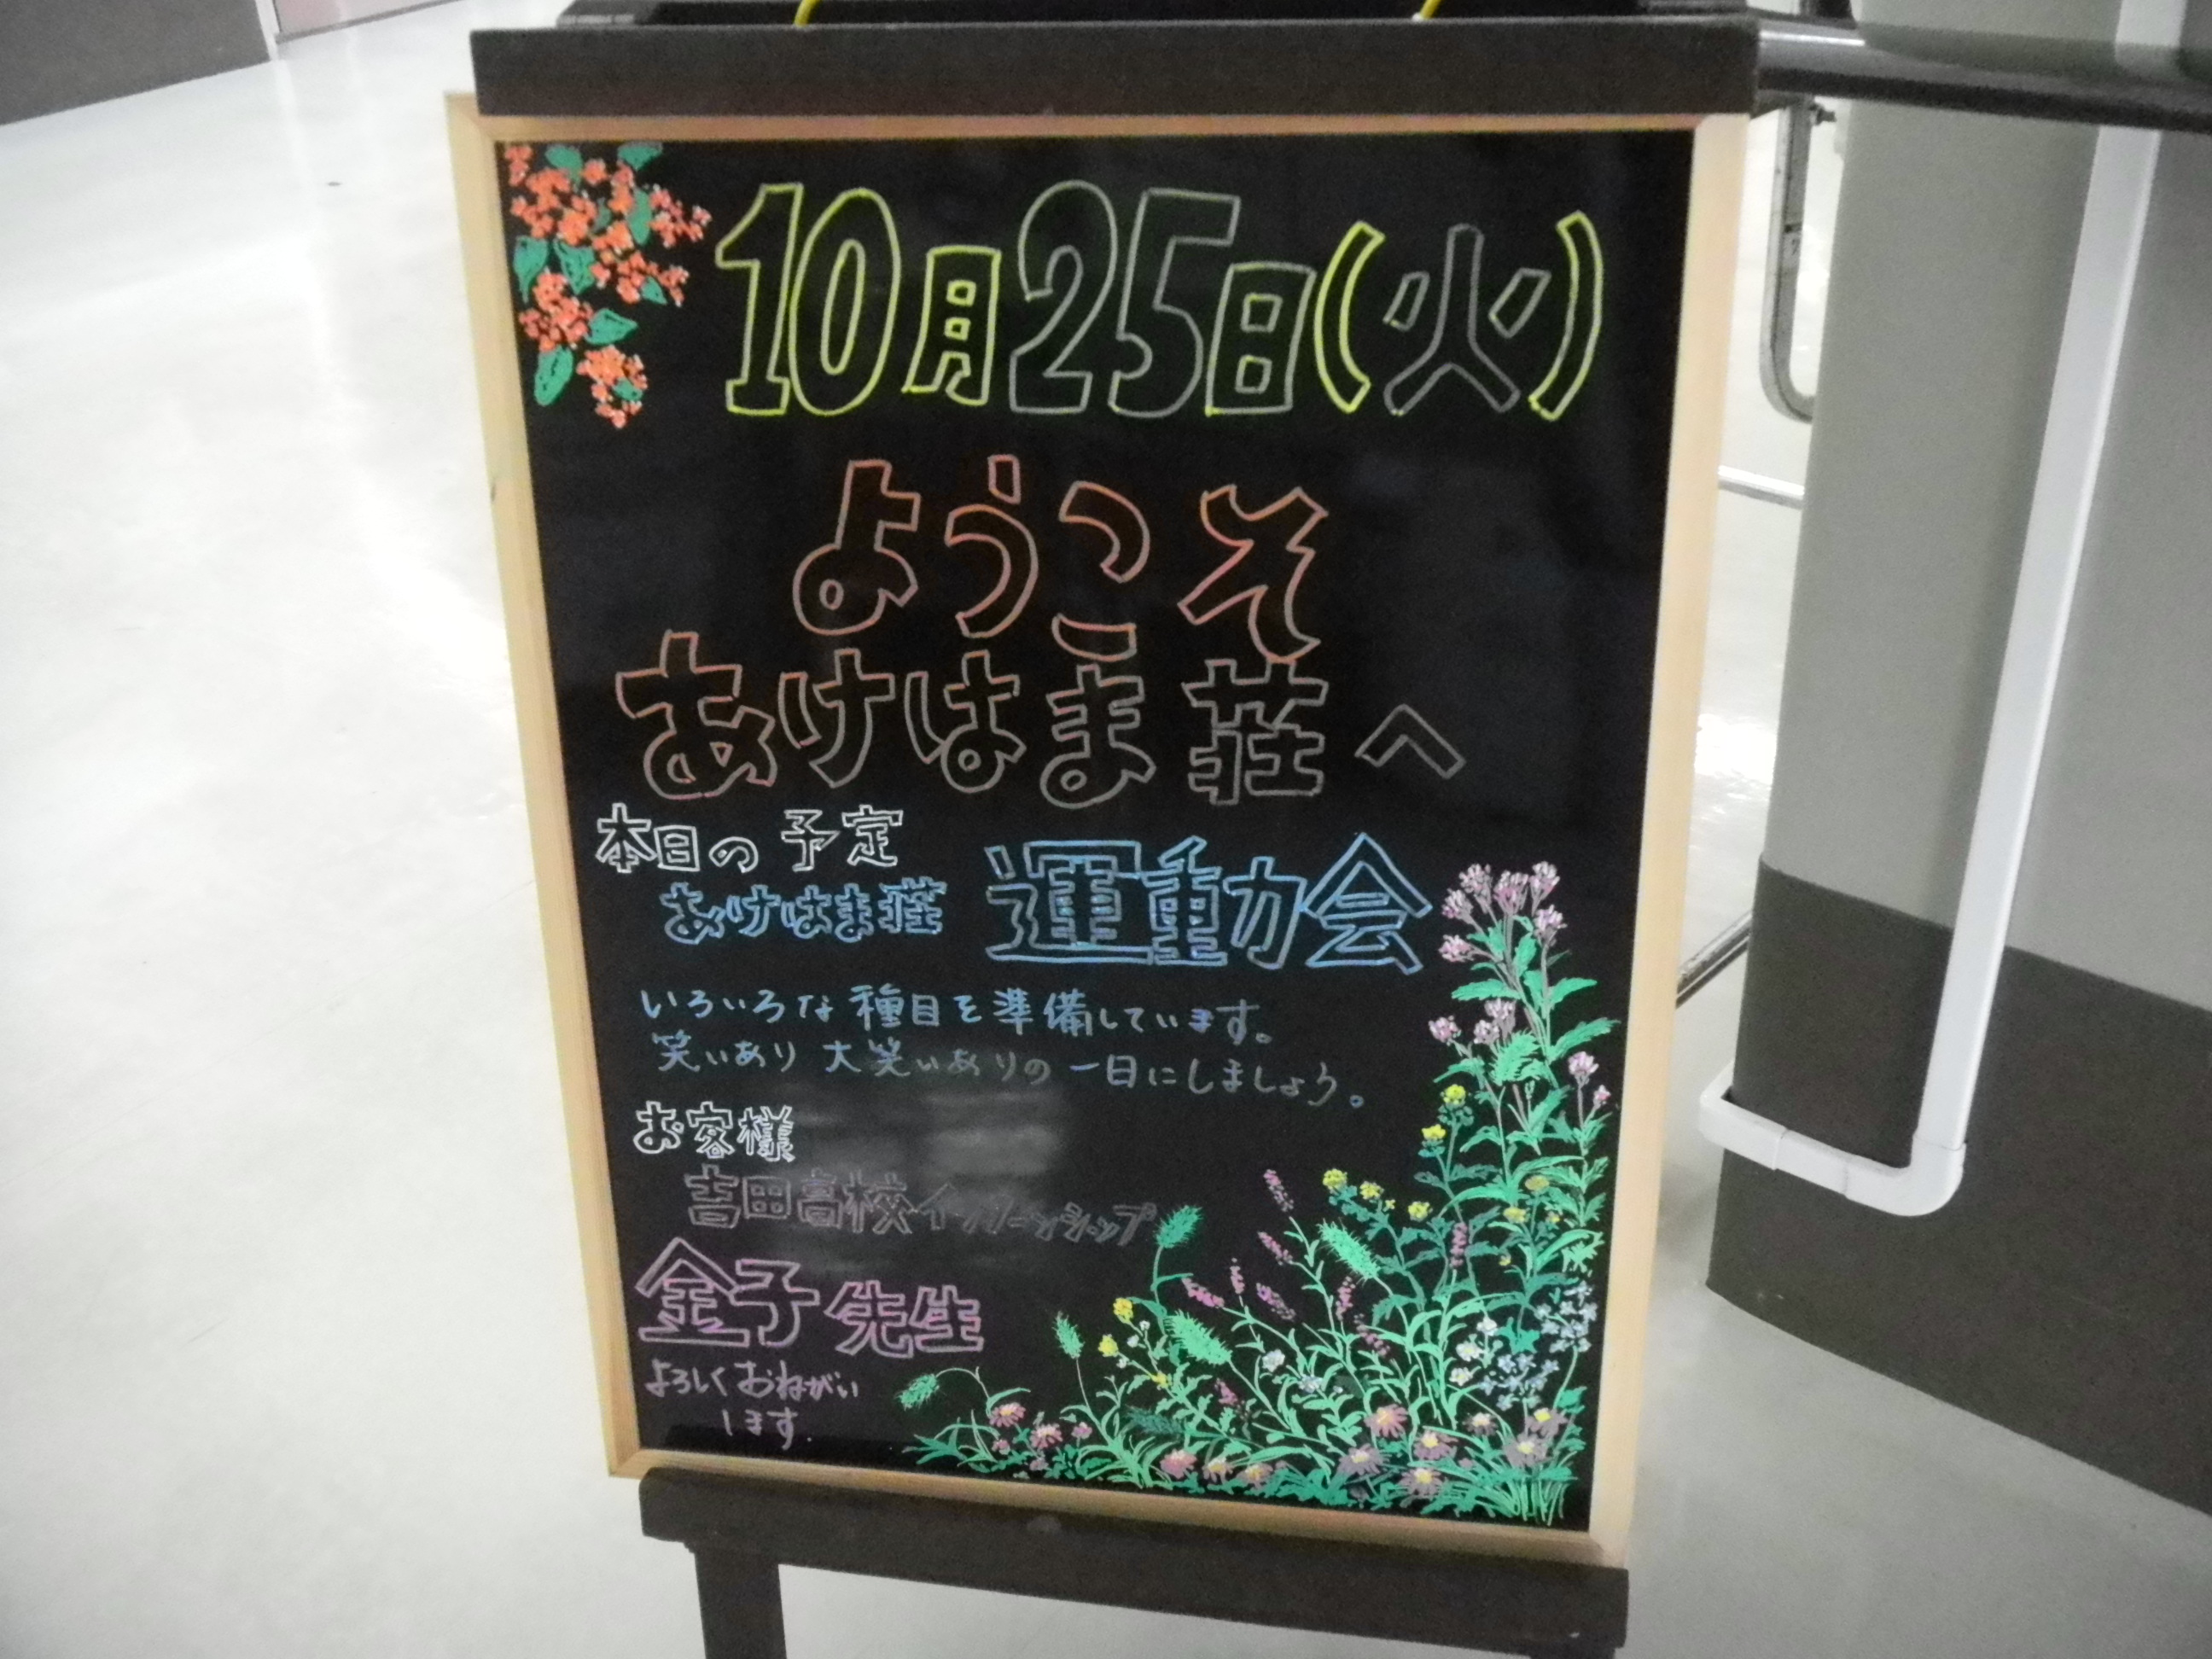 10月25日(火)
ようこそ
あけはま荘へ
本日の予定
あけはま荘 運動会
いろいろな種目を準備しています。
笑いあり 大笑いありの 一日にしましょう。
お客様
吉田高校インターンシップ
金子先生
よろしくおねがい
します.